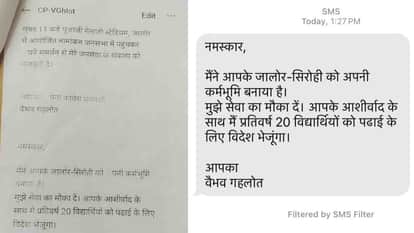 CP-VGhlot
Edit
सुबह 11 बजे
स्टेडियम, जालोर
में आयोजित नामांकन जनसभा में पहुंचकर
मेरे समर्थन में
वैभव गहलोत
नमस्कार,
मैंने आपके जालोर-सिरोही को अपनी कर्मभूमि
बनाया है।
मुझे सेवा का मौका दें। आपके आशीर्वाद के
साथ मैं प्रतिवर्ष 20 विद्यार्थियों को पढाई के लिए
विदेश भेजूंगा।
SMS
Today, 1:27 PM
नमस्कार,
मैंने आपके जालोर-सिरोही को अपनी
कर्मभूमि बनाया है।
मुझे सेवा का मौका दें। आपके आशीर्वाद के
साथ मैं प्रतिवर्ष 20 विद्यार्थियों को पढाई के
लिए विदेश भेजूंगा।
आपका
वैभव गहलोत
Filtered by SMS Filter